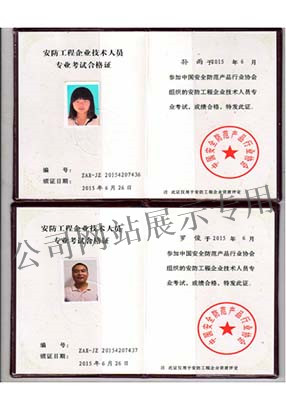 安防工程企业技术人员
专业考试合格证
编 号：
ZAX-JZ 20154207436
颁证日期：
2015 年 6 月 26 日
孙 雨 于 2015 年 6 月
参加中国安全防范产品行业协会
组织的安防工程企业技术人员专
业考试，成绩合格，特发此证。
中国安全防范产品行业协会
注 此证仅用于安防工程企业资质评定
公司网站展示专用
安防工程企业技术人员
专业考试合格证
编 号：
ZAX-JZ 20154207437
颁证日期：
2015 年 6 月 26 日
罗 俊 于 2015 年 6 月
参加中国安全防范产品行业协会
组织的安防工程企业技术人员专
业考试，成绩合格，特发此证。
中国安全防范产品行业协会
注 此证仅用于安防工程企业资质评定